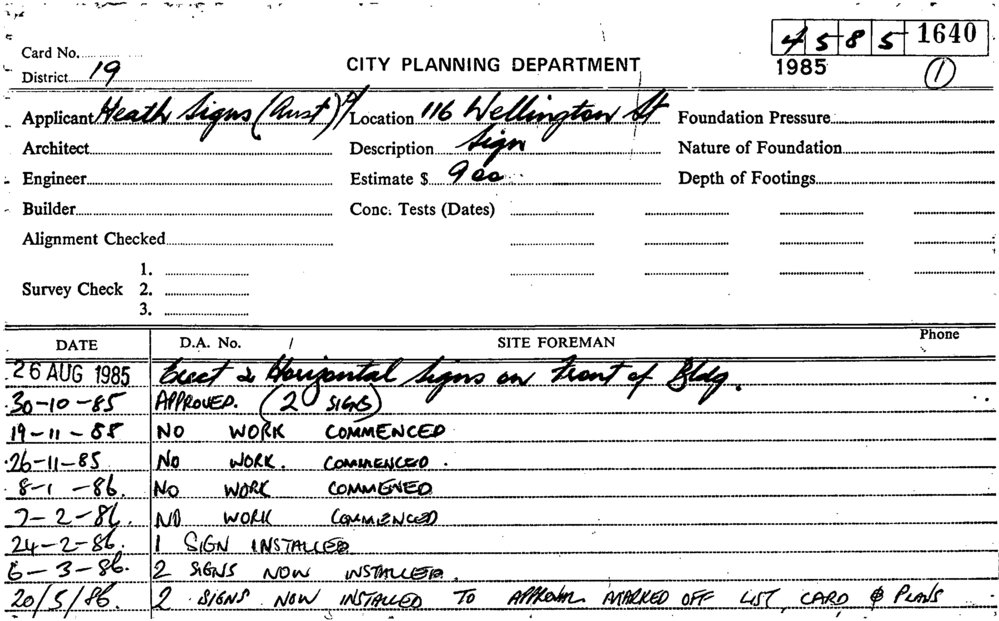 4 5 8 5 1640
Card No.
District 19
CITY PLANNING DEPARTMENT
1985
1
Applicant Heath Signs (Aust) P/ Location 116 Wellington St Foundation Pressure
Architect Description Sign Nature of Foundation
Engineer Estimate $ 900 Depth of Footings
Builder Conc. Tests (Dates)
Alignment Checked
1.
Survey Check 2.
3.
DATE D.A. No. / SITE FOREMAN Phone
26 AUG 1985 Erect 2 Horizontal Signs on Front of Bldg.
30-10-85 APPROVED. (2 SIGNS)
19-11-85 NO WORK COMMENCED
26-11-85 NO WORK. COMMENCED.
8-1-86. NO WORK COMMENED
7-2-86. NO WORK COMMENCED
24-2-86. 1 SIGN INSTALLED
6-3-86. 2 SIGNS NOW INSTALLED.
20/5/86. 2 SIGNS NOW INSTALLED TO MARKED OFF LIST, CARD & PLANS